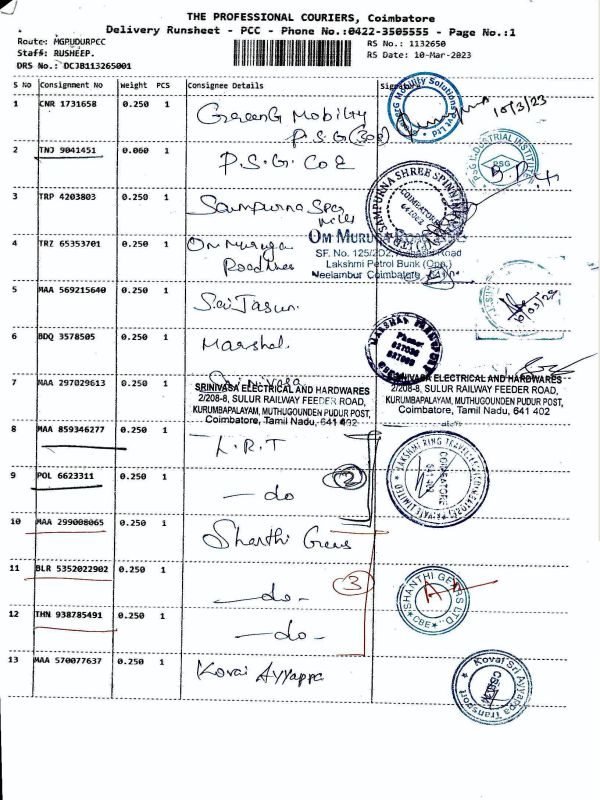 THE PROFESSIONAL COURIERS, Coimbatore
Delivery Runsheet - PCC - Phone No.:0422-3505555 - Page No.:1
Route: MGPUDURPCC
RS No.: 1132650
Staff: RUSHEEP.
RS Date: 10-Mar-2023
DRS No.: DCJB113265001
S No Consignment No Weight PCS Consignee Details Signature
1 CNR 1731658 0.250 1 GreenG Mobilty
P.S.G (308)
10/3/23
2 TNJ 9041451 0.060 1 P.S.G. Co E
PSG
3 TRP 4203803 0.250 1 Sampurna Spg
mills
SAMPURNA SHREE SPINNING
COIMBATORE
641062
4 TRZ 65353701 0.250 1 Om Muruga
Roadlines
OM MURUGA
SF. No. 125/2D2, Road
Lakshmi Petrol Bunk (Opp.)
Neelambur Coimbatore
5 MAA 569215640 0.250 1 Sai Jasun.
6 BDQ 3578505 0.250 1 Marshal.
MARSHAL
Phone:
827036
7 MAA 297029613 0.250 1 Srinivasa
SRINIVASA ELECTRICAL AND HARDWARES
2/208-8, SULUR RAILWAY FEEDER ROAD,
KURUMBAPALAYAM, MUTHUGOUNDEN PUDUR POST,
Coimbatore, Tamil Nadu, 641 402
SRINIVASA ELECTRICAL AND HARDWARES
2/208-8, SULUR RAILWAY FEEDER ROAD,
KURUMBAPALAYAM, MUTHUGOUNDEN PUDUR POST,
Coimbatore, Tamil Nadu, 641 402
8 MAA 859346277 0.250 1 L.R.T
LAKSHMI RING TRAVELLERS (COIMBATORE) PRIVATE LIMITED
COIMBATORE
9 POL 6623311 0.250 1 — do
2
10 MAA 299008065 0.250 1 Shanthi Gears
11 BLR 5352022902 0.250 1 — do -
3
SHANTHI GEARS LTD
CBE
12 THN 938785491 0.250 1 — do -
13 MAA 570077637 0.250 1 Kovai Ayyappa
Kovai Sri Ayyappa Transport